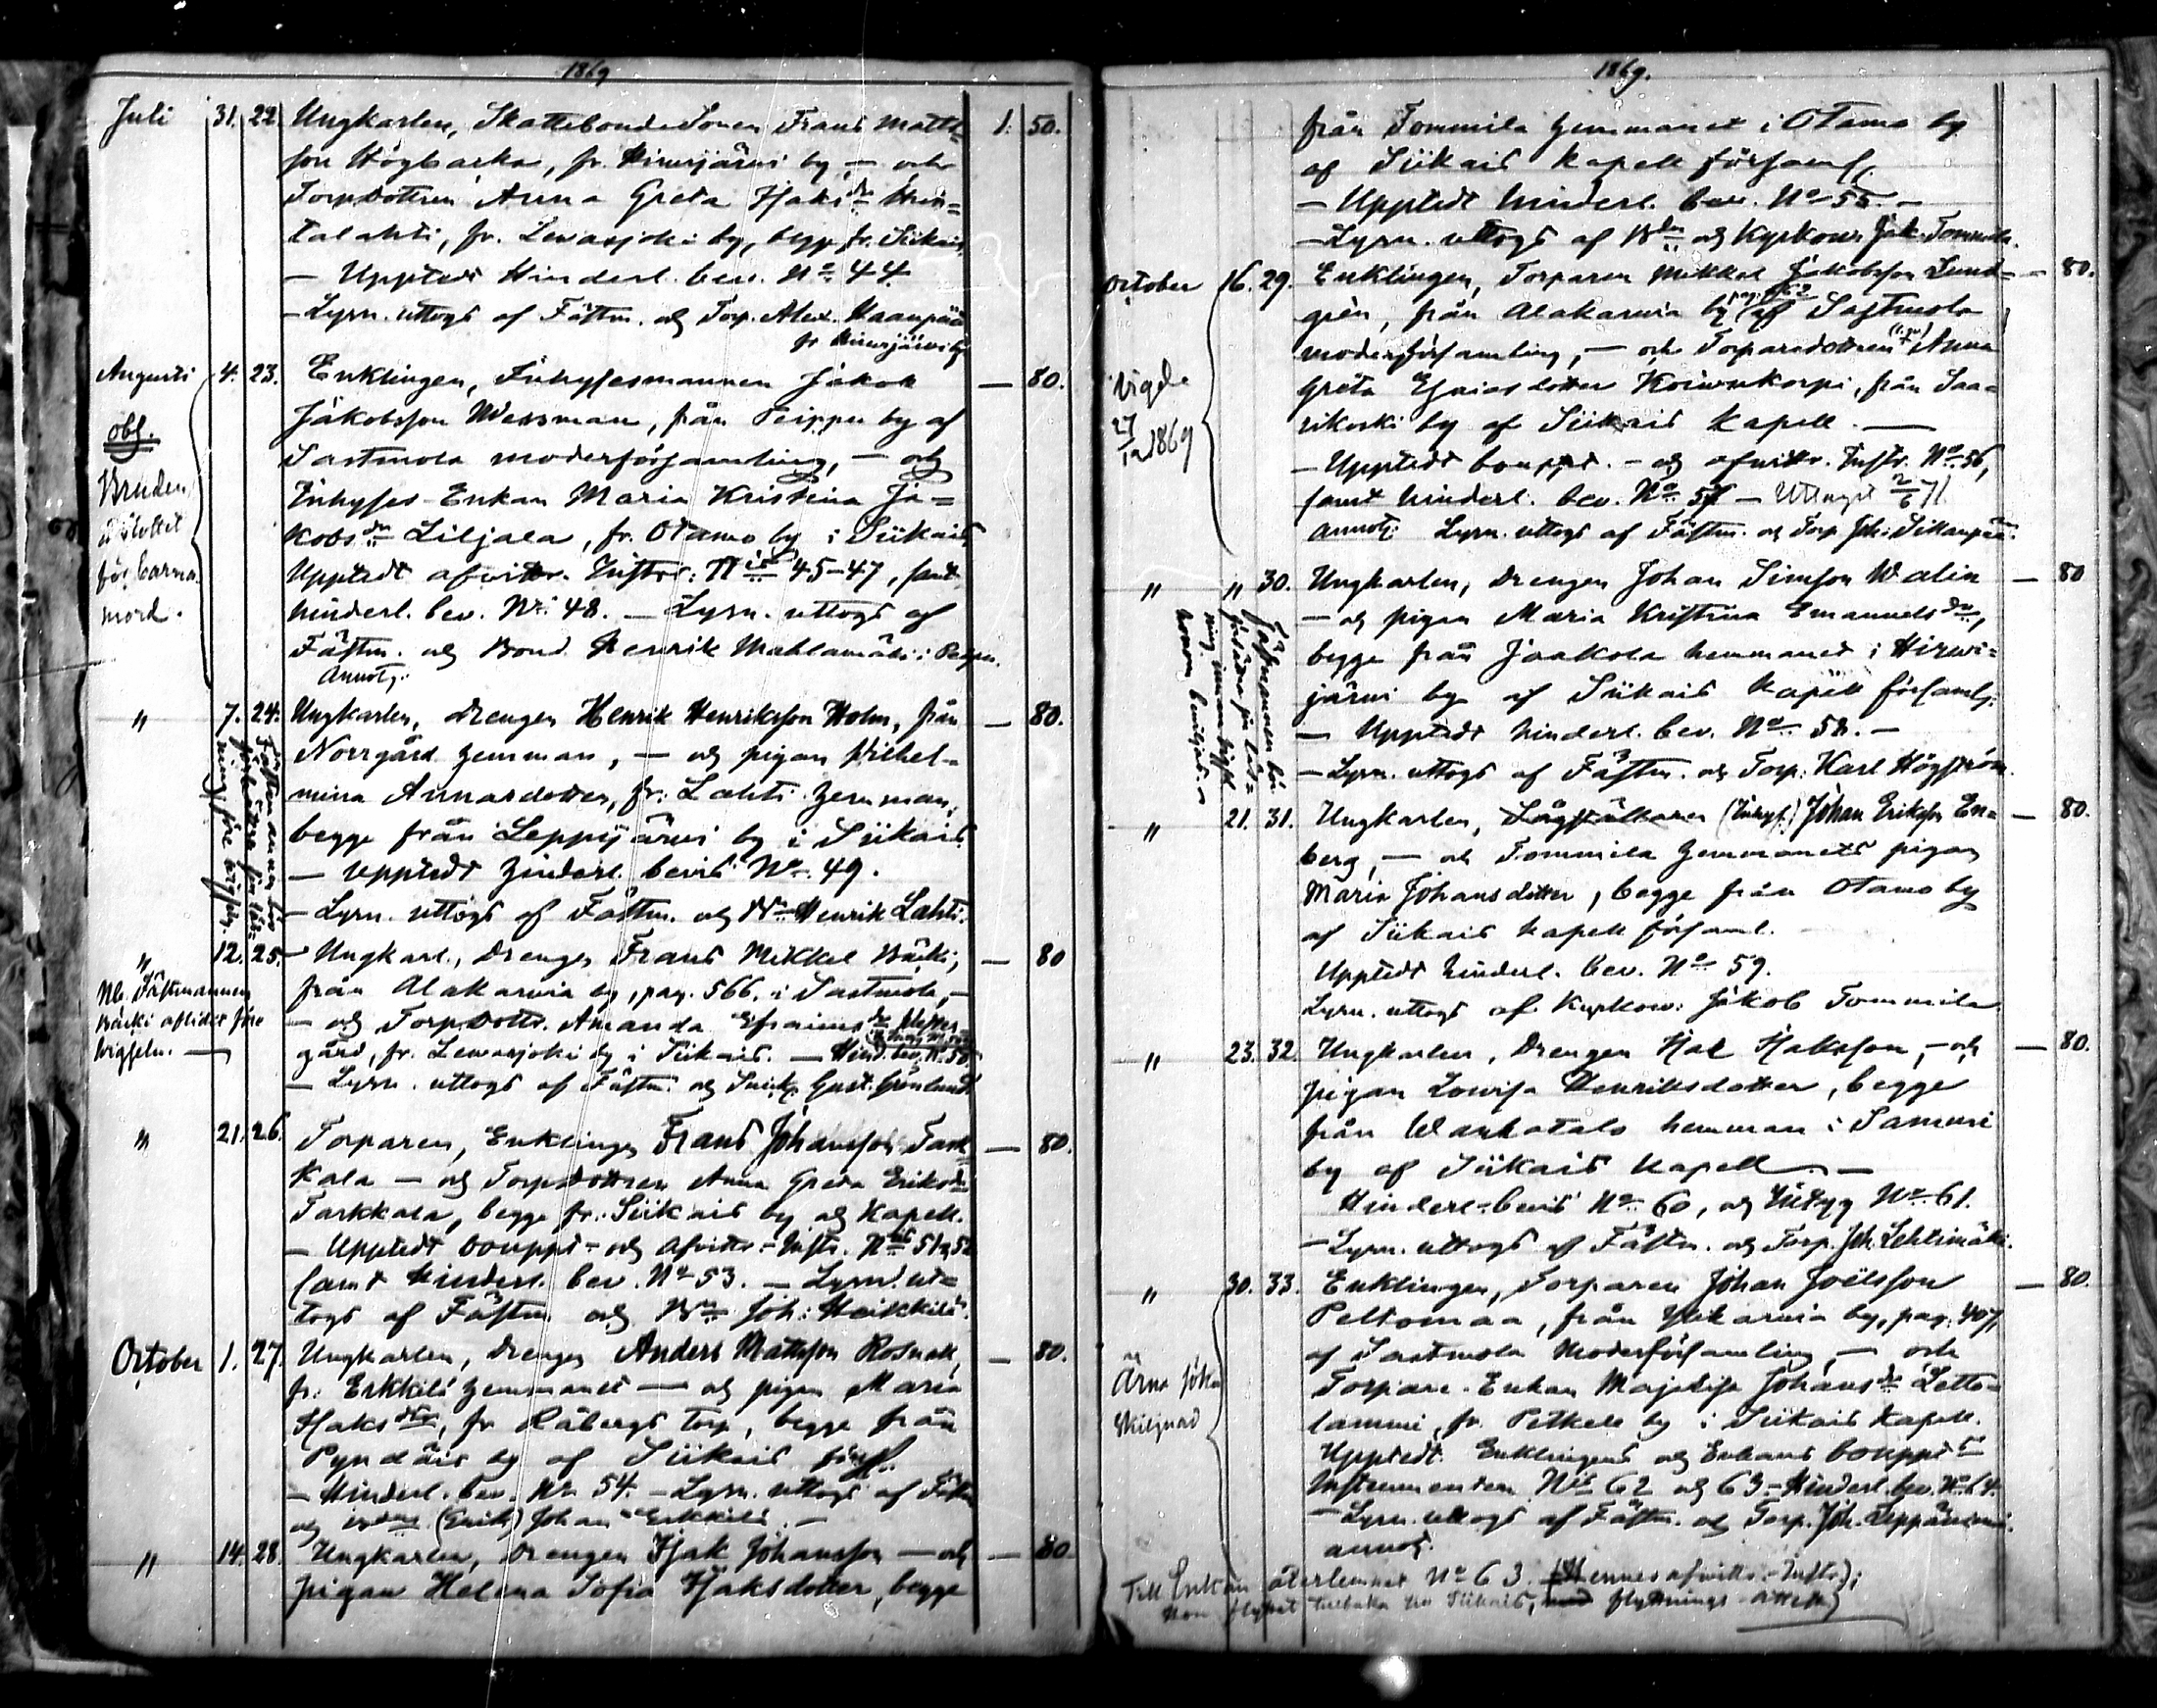 1869
Juli 31. 22. Ungkarlen, Skattebonde Sonen Frans Matts=
son Högbacka, fr. Hirvijärvi by, — och
Torpdottren Anna Greta Isaks dr
talahti, fr. Levasjoki by, begge fr. Siikais
1. 50.
— Uppteddt Hinderl. bev. No 44.
— Lysn. uttogs af Fästm. och Torp. Alex. Haanpää
fr Hirvijärvi by
Augusti 4. 23. Enklingen, Inhysesmannen Jakob — 80.
Jakobsson Wessman, från Peippu by af
Sastmola moderförsamling, — och
Inhyses-Enkan Maria Kristina Ja=
kobs dr Liljala, fr. Otamo by i Siikais
Uppteddt afvittr. Instr: N is 45-47, samt
hinderl. bev. Nr: 48. — Lysn. uttogs af
Fästm. och Bond. Henrik Mahlamäki i
Annotg.
obs.
Bruden
för barna
mord.
" 7. 24. Ungkarlen, drengen Henrik Henriksson Holm, från — 80.
Norrgård hemman, — och pigan Wilhel=
mina Annasdotter, fr. Lahti hemman,
begge från Leppijärvi by i Siikais.
— Uppteddt hinderl. bevis No 49.
— Lysn. uttogs af Fästm. och Bn Henrik Lahti.
Fästmannen bör
ning före vigseln.
" 12. 25. Ungkarl., Drengen Frans Mikkel Bäcki, — 80
från Alakarvia by, pag. 566. i Sastmola, —
— och Torp.Dottr. Amanda Efraims dr
gård, fr. Levasjoki by i Siikais. — Hind. bev. N. 50
— Lysn. uttogs af Fästm. och Gust. Grönlund
Nb. Fästmannen
Bäcki afliden före
vigseln. —
" 21. 26. Torparen, Enklingen Frans Johansson Tark= — 80.
kala — och Torpdottren Anna Greta Eriksdr
Tarkkala, begge fr. Siikais by och Kapell.
— Uppteddt bouppt- och Afvittr.- Instr. N 51 & 52
samt Hinderl. bev. No 53. — Lysn. ut=
togs af Fästm och Bn Joh: Heikkilä.
October 1. 27. Ungkarlen, drengen Anders Mattsson Rosnell, — 80.
fr. Erkkilä hemmanet — och pigan Maria
Isaks dtr, fr Råbergs torp, begge från
Pyndäis by af Siikais förs.
— Hinderl. bev. Nr. 54. — Lysn. uttogs af Fästm
och (Erik) Johan Erkkilä. —
" 14. 28. Ungkarlen, Drengen Isak Johansson — och — 80
pigan Helena Sofia Isaksdotter, begge
1869.
från Tommila hemmanet i Otamo by
af Siikais kapell församl.
— Uppteddt hinderl. bev. No 55. —
— Lysn. uttogs af Bdn och Kyrkov. Jak. Tommila.
October 16. 29. Enklingen, Torparen Mikkel Jakobsson Lund= — 80.
grén, från Alakarvia by af Sastmola
moderförsamling, — och Torparedottren Anna
Greta Esaiasdotter Koivukorpi, från Saa=
rikoski by af Siikais Kapell. —
— Uppteddt bouppt. - och afvittr. Instr. No 56,
samt hinderl. bev. No 57 — Uttaget 2/6 71.
Annotg. Lysn. uttogs af Fästm. och Torp Joh: Siikanpää.
Vigde
27/12 1869
" " 30. Ungkarlen, Drengen Johan Simsson Walin — 80
— och pigan Maria Kristina Emanuels dr,
begge från Jaakola hemmanet i Hirvi=
järvi by af Siikais Kapell församlg.
— Uppteddt hinderl. bev. No 58. —
— Lysn. uttogs af Fästm. och Torp: Karl Högström.
Fästmannen bör
honom beviljas.
" 21. 31. Ungkarlen, (Inhys.) Johan Eriksson En= — 80.
berg, — och Tommila hemmanets pigan
Maria Johansdotter, begge från Otamo by
af Siikais kapell församl.
Uppteddt hinderl. bev. No 59.
Lysn. uttogs af Kyrkov: Jakob Tommila
" 23. 32. Ungkarlen, Drengen Isak Isaksson, — och — 80.
pigan Lovisa Henriksdotter, begge
från Wanhatalo hemman i Sammi
by af Siikais Kapell. —
Hinderl.-bevis No 60, och No 61.
— Lysn. uttogs af Fästm. och Torp. Joh. Lehtimäki.
" 30. 33. Enklingen, Torparen Johan Joëlsson — 80.
Peltomaa, från Ylikarvia by, pag. 407,
af Sastmola Moderförsamling, — och
Torpare-Enkan Majalisa Johans dr Letto=
lammi, fr. Petkele by i Siikais Kapell.
Uppteddt Enklingens och Enkans bouppts
Instrumenten No 62 och 63 — Hinderl. bev. No 64.
— Lysn. uttogs af Fästm. och Torp. Joh. Leppäniemi.
annot.
Ärna söka
Skilsnad
Till Enkan återlemnat No 63. (Hennes afvittr.-Instr);
Hon flyttat tillbaka till Siikais, flyttnings-attest)